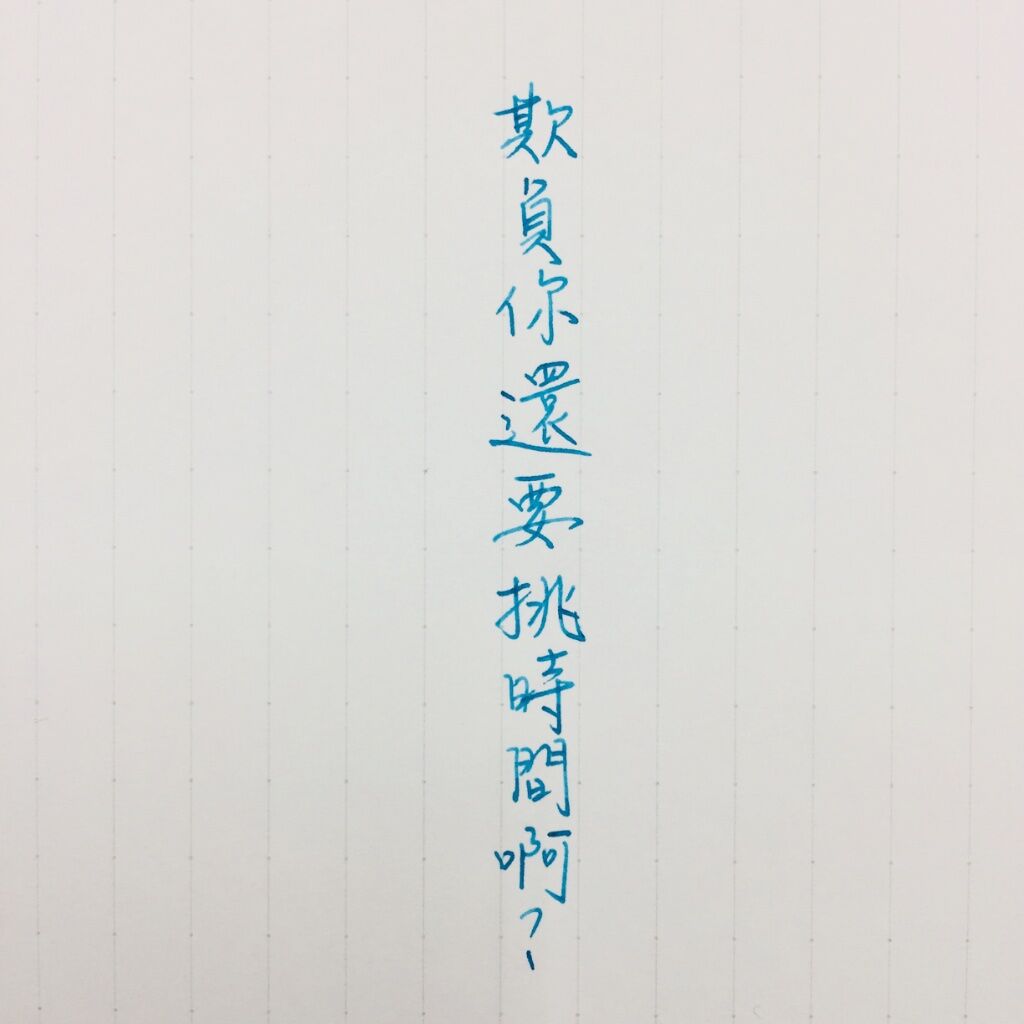 欺負你還要挑時間啊?